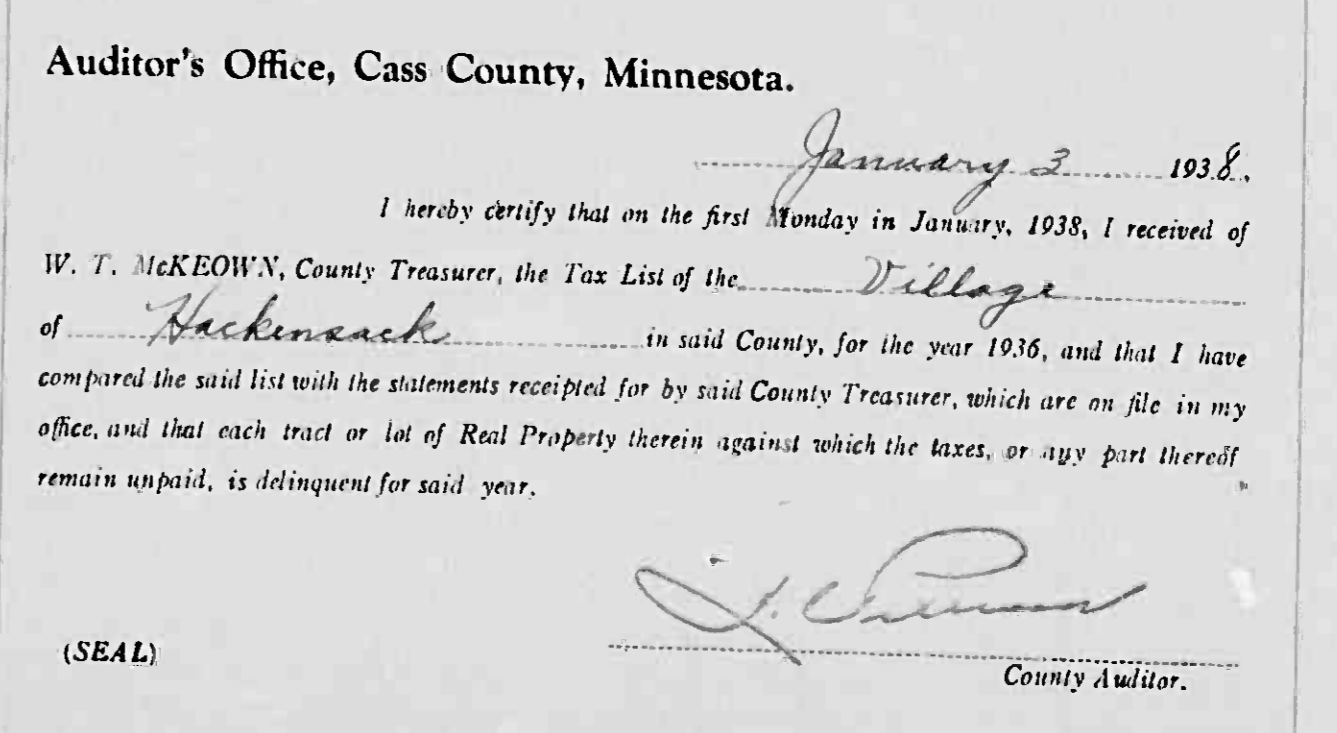 Auditor's Office, Cass County, Minnesota.
January 3 1938.
I hereby certify that on the first Monday in January, 1938, I received of
W. T. McKEOWN, County Treasurer, the Tax List of the Village
of Hackensack in said County, for the year 1936, and that I have
compared the said list with the statements receipted for by said County Treasurer, which are on file in my
office, and that each tract or lot of Real Property therein against which the taxes, or any part thereof
remain unpaid, is delinquent for said year.
(SEAL)
County Auditor.